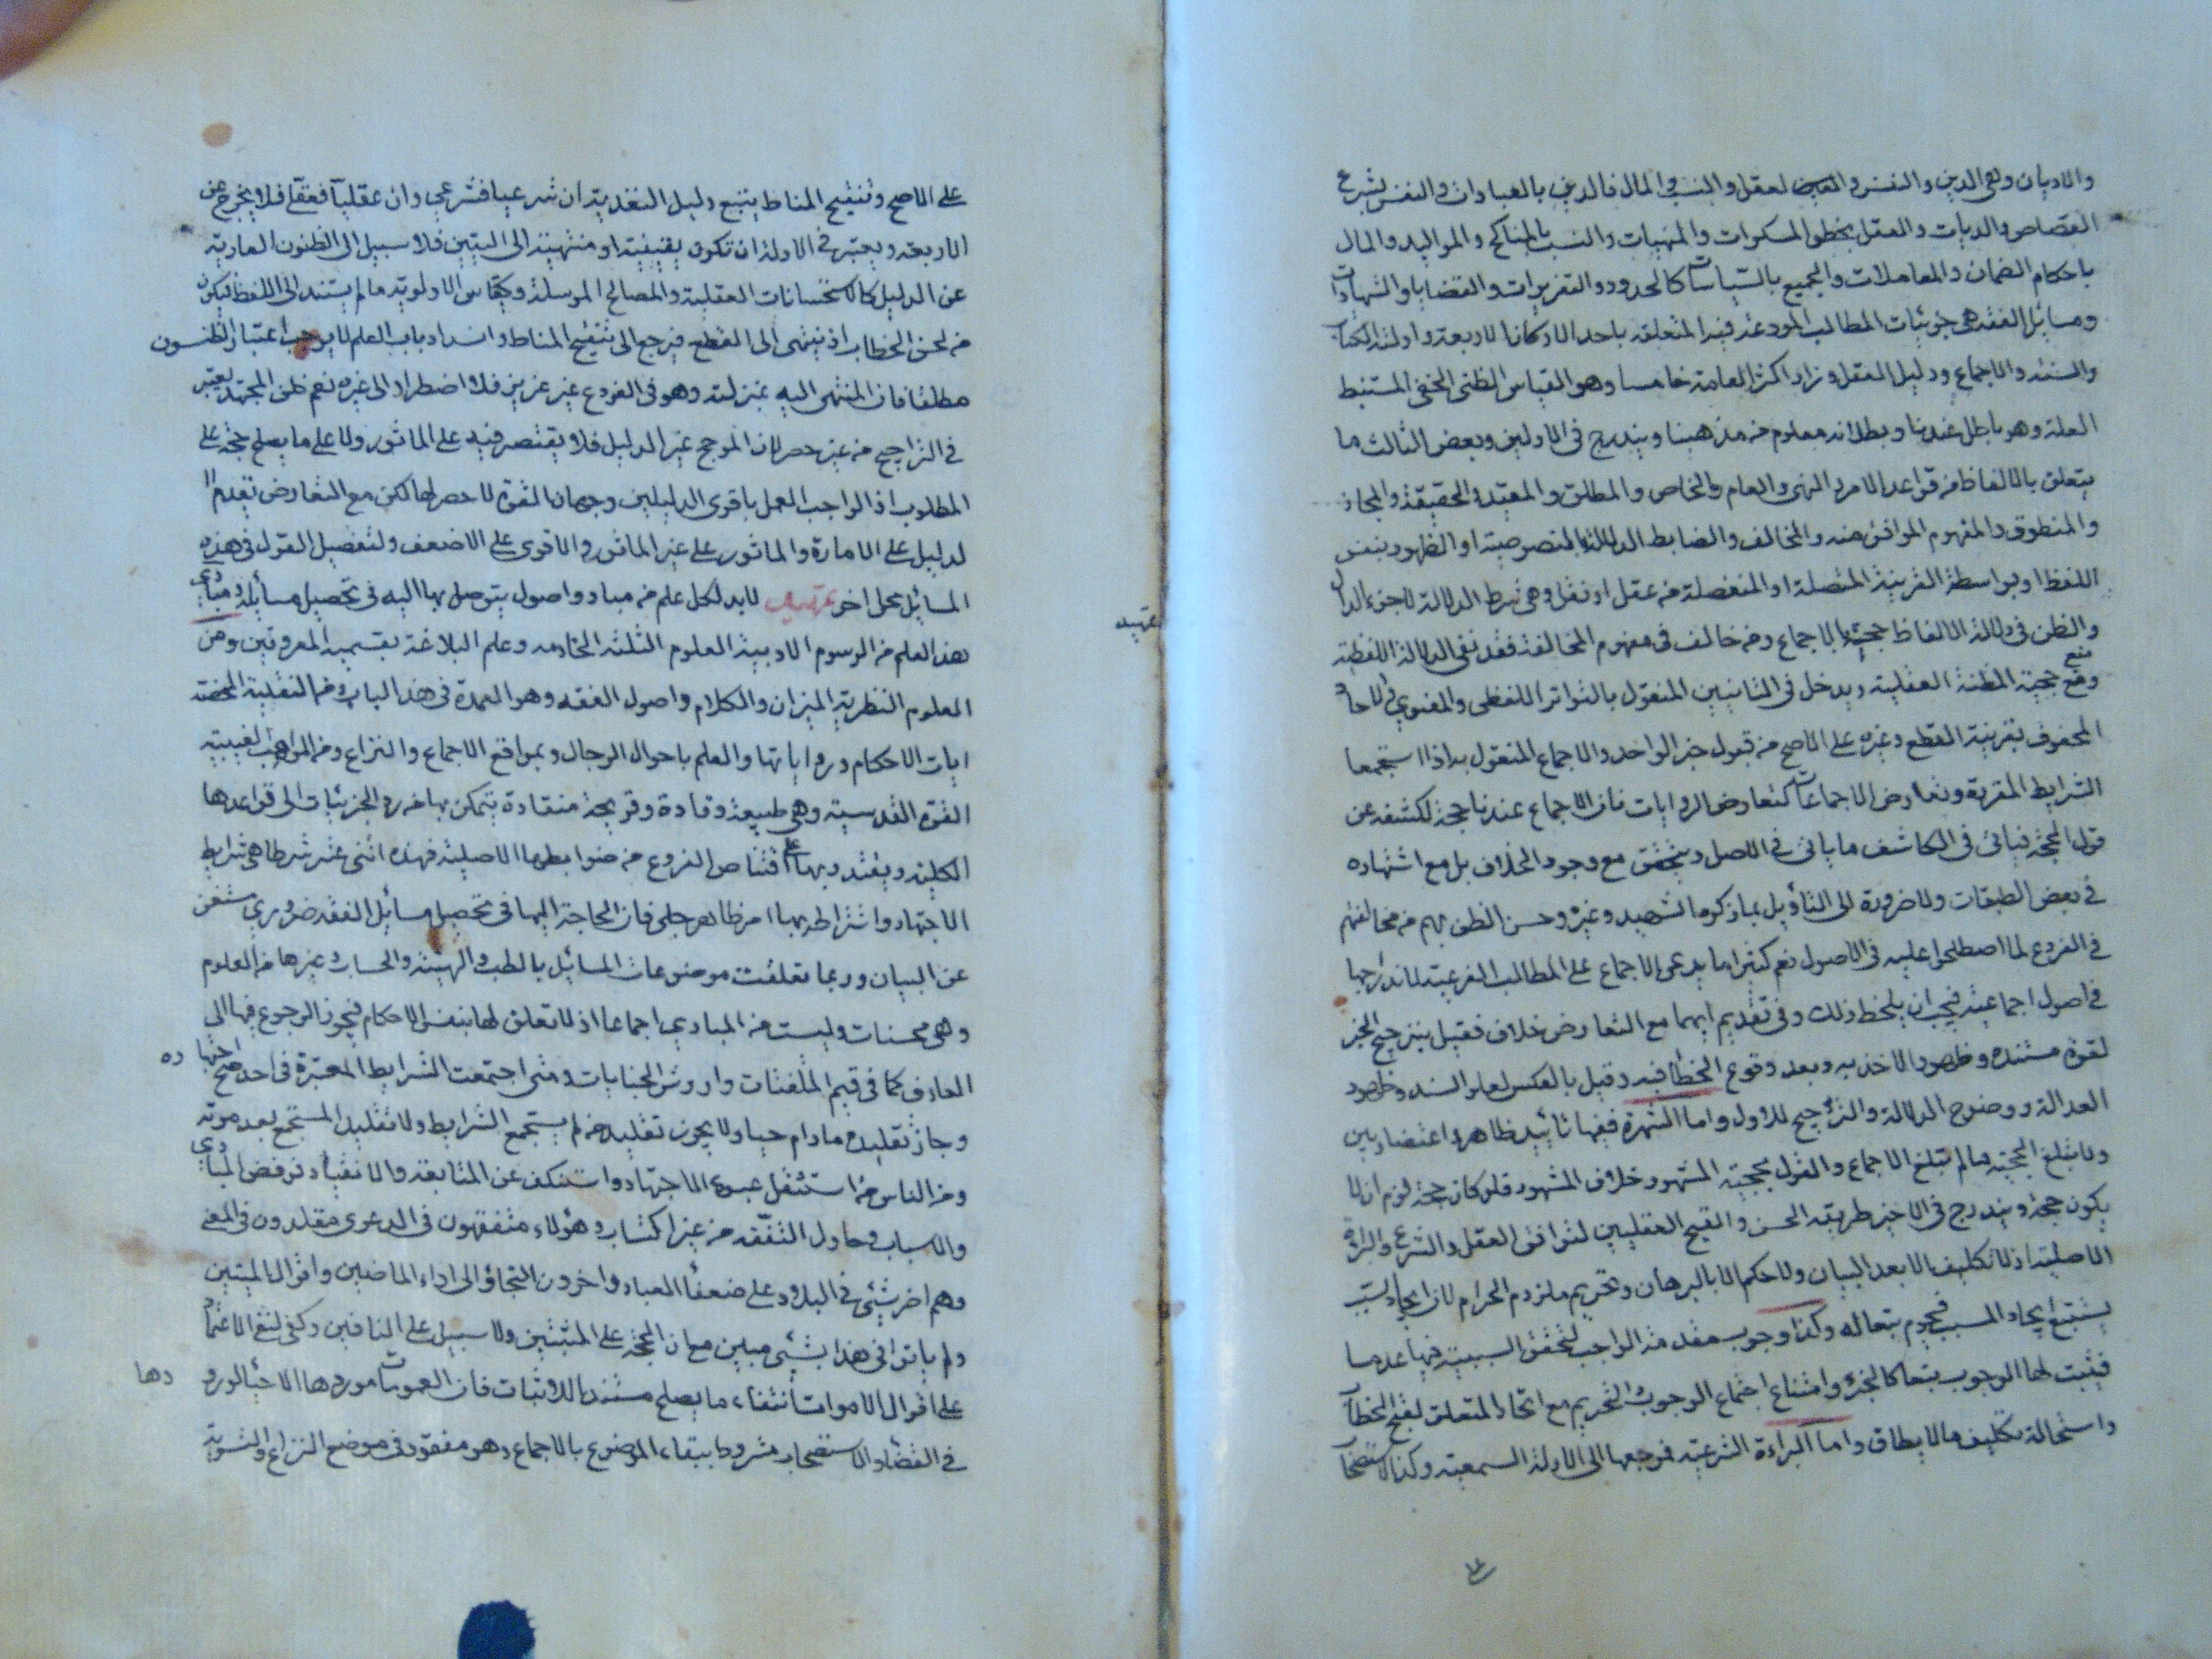 والاديان وهي الدين والنفس والعقل والنسب والمال فالدين بالعبادات والنفس بشرع
القصاص والديات والعقل بحظر المسكرات والنسب بالمناكح والمواليد والمال
باحكام الضمان والمعاملات والجميع بالسياسات كالحدود والتعزيرات والقضايا والشهادات
ومسائل الفقه هي جزئيات المطالب المودعة فيه المتعلقه باحد الاركان الاربعة وادلته الكتاب
والسنه والاجماع ودليل العقل وزاد اكثر العامة خامسا وهو القياس الظنى الخفي المستنبط
العلة وهو باطل عندنا وبطلانه معلوم من مذهبنا ويندرج فى الاولين وبعض الثالث ما
يتعلق بالالفاظ من قواعد الامر والنهى والعام والخاص والمطلق والمقيد والحقيقة والمجاز
والمنطوق والمفهوم الموافق منه والمخالف والضابط الدلالة بالنصوصية او الظهور بنفس
اللفظ او بواسطة القرينة المتصلة او المنفصلة من عقل او نقل وهى شرط الدلالة لاجزء الدال
والظن فى دلالة الالفاظ حجة بالاجماع ومن خالف فى مفهوم المخالفة فقد نفى الدلالة اللفظية
ومنع حجية المظنة العقلية ويدخل فى الثانيين المنقول بالتواتر اللفظى والمعنوي والاحاد
المحفوف بقرينة القطع وغيره على الاصح من قبول خبر الواحد والاجماع المنقول به اذا استجمعا
الشرايط المقررة وتعارض الاجماعات كتعارض الروايات فان الاجماع عندنا حجة لكشفه عن
قول الحجة فياتى فى الكاشف ما ياتى فى الاصل ويتحقق مع وجود الخلاف بل مع اشتهاره
فى بعض الطبقات ولا ضرورة الى التأويل بما ذكره الشهيد وغيره وحسن الظن بهم من مخالفتهم
فى الفروع لما اصطلحوا عليه فى الاصول نعم كثيرا ما يدعى الاجماع على المطالب الفرعية لاندراجها
فى اصول اجماعية فيجب ان يلحظ ذلك وفى تقديم ايهما مع التعارض خلاف فقيل بترجيح الخبر
لقوة مستنده وظهور الاخذ به وبعد وقوع الخطأ فيه وقيل بالعكس لعلو السند وظهور
العدالة ووضوح الدلالة والترجيح للاول واما الشهرة ففيها تأييد ظاهر واعتضاد بين
ولا تبلغ الحجية ما لم تبلغ الاجماع والقول بحجية المشهور خلاف المشهور فلو كان حجة لزم ان لا
يكون حجة ويندرج فى الاخير طريقه الحسن والقبح العقليين لتوافق العقل والشرع والبراءة
الاصلية اذ لا تكليف الا بعد البيان ولا حكم الا بالبرهان وتحريم ملزوم الحرام لان ايجاد السبب
يستتبع ايجاد المسبب فيحرم بتعاله وكذا وجوب مقدمة الواجب لتحقق السببية فيها عدما
فيثبت لها الوجوب بتعا كالجزء وامتناع اجتماع الوجوب والتحريم مع اتحاد المتعلق لقبح الخطاب
واستحالة تكليف مالايطاق واما البراءة الشرعيه فمرجعها الى الادلة السمعيه وكذا الاستصحاب
على الاصح وتنقيح المناط يتبع دليل التعدية ان شرعيا فشرعي وان عقليا فعقلى فلا يخرج عن
الاربعه ويعتبر فى الادلة ان تكون يقينية او منتهية الى اليقين فلا سبيل الى الظنون العارية
عن الدليل كالاستحسانات العقلية والمصالح المرسلة وكقياس الاولويه ما لم يستند الى اللفظ فيكون
من لحن الخطاب اذ ينتهى الى القطع فيرجع الى تنقيح المناط وانسداد باب العلم لا يوجب اعتبار الظنون
مطلقا فان المنتهى اليه بمنزلته وهو فى الفروع غير عزيز فلا اضطرار الى غيره نعم ظن المجتهد يعتبر
فى التراجيح من غير حصر لان المرجح غير الدليل فلا يقتصر فيه على الماثور ولا على ما يصلح حجة على
المطلوب اذ الواجب العمل باقوى الدليلين وجهات القوة لا حصر لها لكن مع التعارض تقديم
الدليل على الامارة والماثور على غير الماثور والاقوى على الاضعف ولتفصيل القول فى هذه
المسائل محل اخر تمهيد لابد لكل علم من مباد واصول يتوصل بها اليه فى تحصيل مسائله ومبادي
تمهيد
هذا العلم من الرسوم الادبية العلوم الثلثة الخادمه وعلم البلاغة بقسميه المعروفين ومن
العلوم النظرية الميزان والكلام واصول الفقه وهو العمدة فى هذا الباب ومن النقلية المحضة
ايات الاحكام ورواياتها والعلم باحوال الرجال وبمواقع الاجماع والنزاع ومن المواهب الغيبيه
القوة القدسيه وهى طبيعة وقادة وقريحة منقادة يتمكن بها من رد الجزئيات الى قواعدها
الكلية ويقتدر بها على اقتناص الفروع من ضوابطها الاصلية فهذه اثنى عشر شرطا هى شرايط
الاجتهاد واشتراطه بها امر ظاهر جلى فان الحاجة اليها فى تحصيل مسائل الفقه ضروري مستغن
عن البيان وربما تعلقت موضوعات المسائل بالطب والهيئة والحساب وغيرها من العلوم
وهى محسنات وليست من المبادي اجماعا اذ لا تعلق لها بنفس الاحكام فيجوز الرجوع فيها الى
العارف كما فى قيم المتلفات واروش الجنايات ومتى اجتمعت الشرايط المعتبرة فى احد صح اجتهاده
وجاز تقليده مادام حيا ولا يجوز تقليد من لم يستجمع الشرايط ولا تقليد المستجمع بعد موته
ومن الناس من استثقل عبوء الاجتهاد واستنكف عن المتابعة والانقياد فرفض المبادي
والاسباب وحاول التفقه من غير اكتساب وهؤلاء متفقهون فى الدعوى مقلدون فى المعنى
وهم اضر شيئى فى البلاد على ضعفاء العباد واخرون التجاؤ الى اراء الماضين واقوال الميتين
ولم ياتوا فى هذا بشيئى مبين مع ان الحجة على المثبتين ولا سبيل على النافين وكفى لمنع الاعتماد
على اقوال الاموات انتفاء ما يصلح مستندا للاثبات فان العمومات موردها الاحياء لورودها
فى القضاء والاستصحاب مشروط ببقاء الموضوع بالاجماع وهو مفقود فى موضع النزاع والتسوية